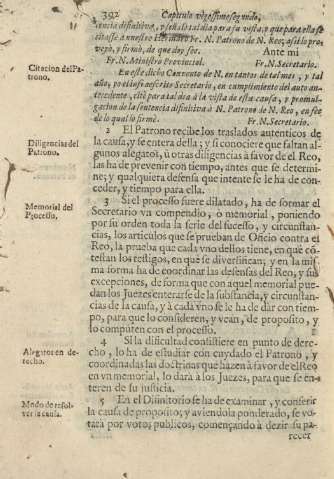 392 Capitulo vigessimosegundo,
tencia difinitiva, y señalò tal dia para la vista, y que para ella se
citasse à nuestro Hermano Fr. N. Patrono de N. Reo; assi lo pro-
veyò, y firmò, de que doy fee. Ante mi
Fr. N. Ministro Provincial. Fr. N. Secretario.
Citacion del Pa-
trono.
En este dicho Convento de N. en tantos de tal mes, y tal
año, yo el infraescrito Secretario, en cumplimiento del auto an-
tecedente, citè para tal dia à la vista de esta causa, y promul-
gacion de la sentencia difinitiva à N. Patrono de N. Reo, en fee
de lo qual lo firmè. Fr. N. Secretario.
Diligencias del
Patrono.
2 El Patrono recibe los traslados autenticos de
la causa, y se entera della; y si conociere que faltan al-
gunos alegatos, ù otras diligencias à favor de el Reo,
las ha de prevenir con tiempo, antes que se determi-
ne; y qualquiera defensa que intente se le ha de con-
ceder, y tiempo para ella.
Memorial del
Processo.
3 Si el processo fuere dilatado, ha de formar el
Secretario vn compendio, o memorial, poniendo
por su orden toda la serie del sucesso, y circunstan-
cias, los articulos que se prueban de Oficio contra el
Reo, la prueba que cada vno dellos tiene, en què cõ-
testan los testigos, en què se diversifican; y en la mis-
ma forma ha de coordinar las defensas del Reo, y sus
excepciones, de forma que con aquel memorial pue-
dan los Juezes enterarse de la substancia, y circunstan-
cias de la causa, y à cada vno se le ha de dar con tiem-
po, para que lo consideren, y vean, de proposito, y
lo computen con el processo.
Alegatos en de-
recho.
4 Si la dificultad consistiere en punto de dere-
cho, lo ha de estudiar con cuydado el Patrono, y
coordinadas las doctrinas que hazen à favor de el Reo
en vn memorial, lo darà à los Juezes, para que se en-
teren de su justicia.
Modo de resol-
ver la causa.
5 En el Difinitorio se ha de examinar, y conferir
la causa de proposito; y aviendola ponderado, se vo-
tara por votos publicos, començando à dezir su pa-
recer